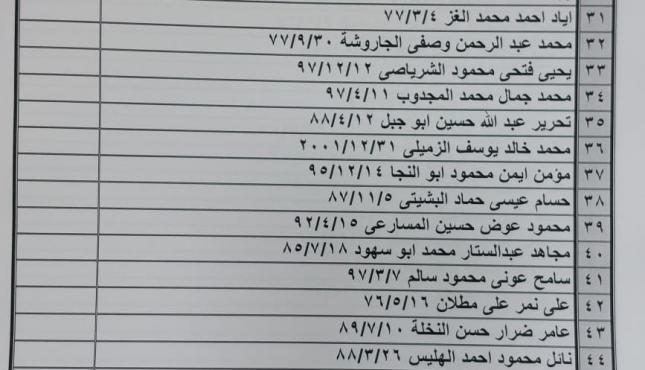 ٣١ اياد احمد محمد الغز ٧٧/٣/٤
٣٢ محمد عبد الرحمن وصفى الجاروشة ٧٧/٩/٣٠
٣٣ يحيى فتحى محمود الشرياصى ٩٧/١٢/١٢
٣٤ محمد جمال محمد المجدوب ٩٧/٤/١١
٣٥ تحرير عبد الله حسين ابو جبل ٨٨/٤/١٢
٣٦ محمد خالد يوسف الزميلى ٢٠٠١/١٢/٣١
٣٧ مؤمن ايمن محمود ابو النجا ٩٥/١٢/١٤
٣٨ حسام عيسى حماد البشيتى ٨٧/١١/٥
٣٩ محمود عوض حسين المسارعى ٩٢/٤/١٥
٤٠ مجاهد عبدالستار محمد ابو سهود ٨٥/٧/١٨
٤١ سامح عونى محمود سالم ٩٧/٣/٧
٤٢ على نمر على مطلان ٧٦/٥/١٦
٤٣ عامر ضرار حسن النخلة ٨٩/٧/١٠
٤٤ نائل محمود احمد الهليس ٨٨/٣/٢٦